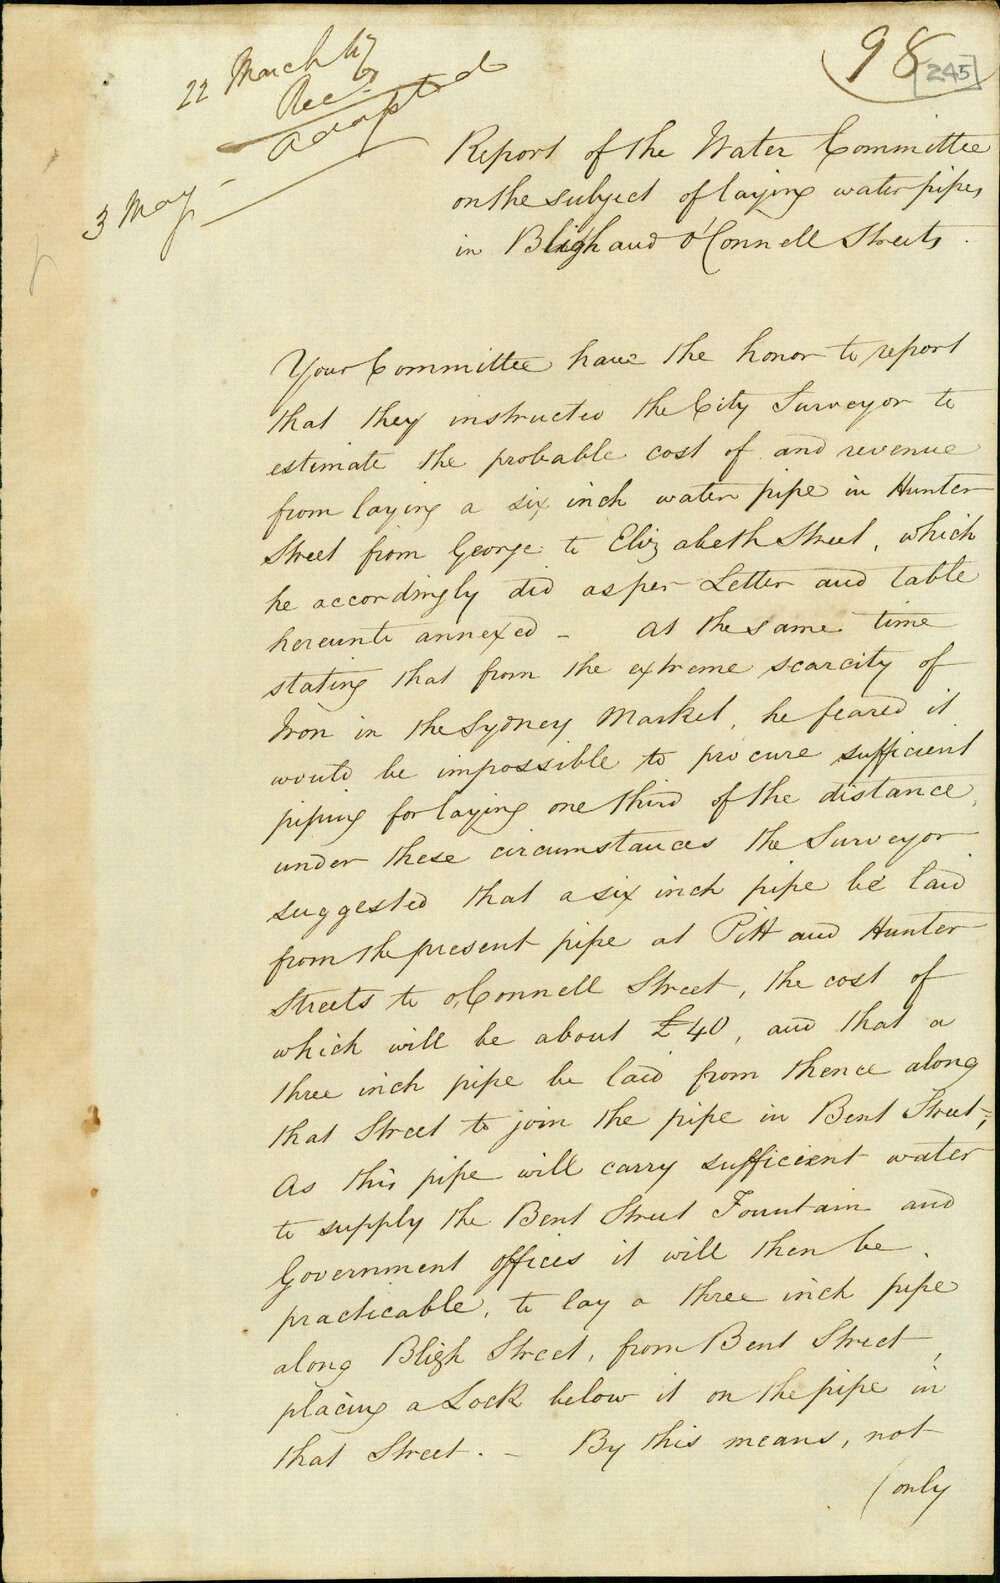 98
245
22 March 47
Recd.
adopted
3 May
Report of the Water Committee
on the subject of laying water pipes
in Bligh and O'Connell Streets.
Your Committee have the honor to report
that they instructed the City Surveyor to
estimate the probable cost of and revenue
from laying a six inch water pipe in Hunter
Street from George to Elizabeth Street, which
he accordingly did as per Letter and table
hereunto annexed - At the same time
stating that from the extreme scarcity of
Iron in the Sydney Market, he feared it
would be impossible to procure sufficient
piping for laying one third of the distance,
under these circumstances the Surveyor
suggested that a six inch pipe be laid
from the present pipe at Pitt and Hunter
Streets to O'Connell Street, the cost of
which will be about £40, and that a
three inch pipe be laid from thence along
that Street to join the pipe in Bent Street;
As this pipe will carry sufficient water
to supply the Bent Street Fountain and
Government offices it will then be
practicable, to lay a three inch pipe
along Bligh Street, from Bent Street,
placing a Lock below it on the pipe in
that Street. - By this means, not
(only